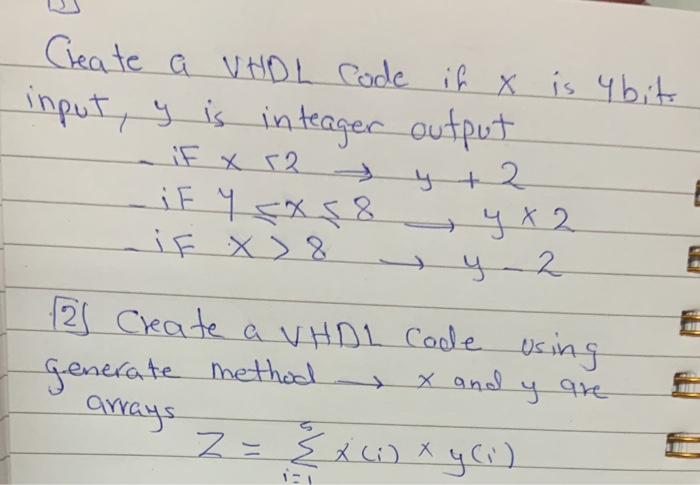 Create a VHDL Code if x is 4bit
input, y is inteager output
- if x < 2 → y + 2
- if 4 ≤ x ≤ 8 → y x 2
- if x > 8 → y - 2
[2] Create a VHDL Code using
generate method → x and y are
arrays
Z = 5 Σ i=1 x(i) x y(i)